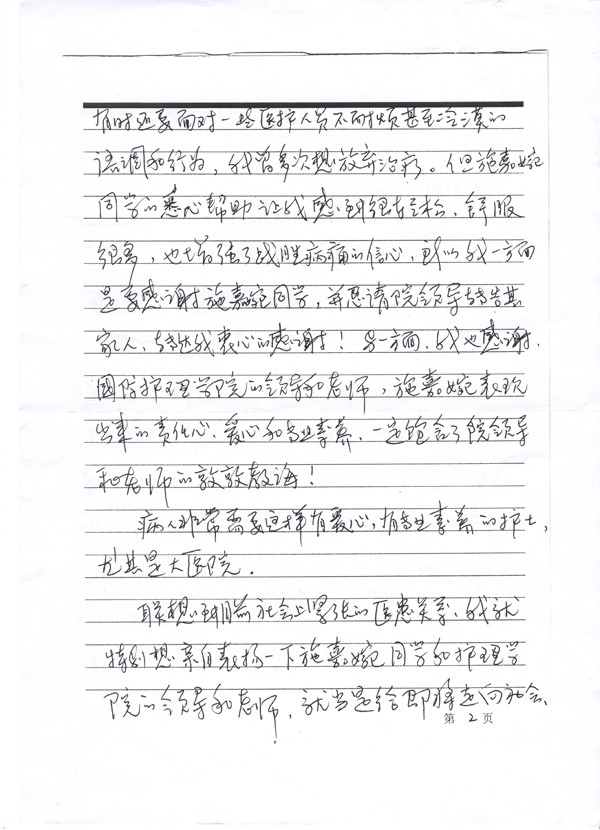 有时还要面对一些医护人员不耐烦甚至冷漠的
语调和行为，我曾多次想放弃治疗。但施嘉婉
同学的悉心帮助让我感到很轻松、舒服
很多，也增强了战胜病痛的信心，所以我一方面
是要感谢施嘉婉同学，并恳请院领导转告其
家人，转达我衷心的感谢！另一方面，我也感谢
国防护理学院的领导和老师，施嘉婉表现
出来的责任心、爱心和专业素养，一定饱含了院领导
和老师的敦敦教诲！
病人非常需要这样有爱心，有专业素养的护士，
尤其是大医院。
联想到目前社会上紧张的医患关系，我就
特别想亲自表扬一下施嘉婉同学和护理学
院的领导和老师，就当是给即将走向社会、
第 2 页